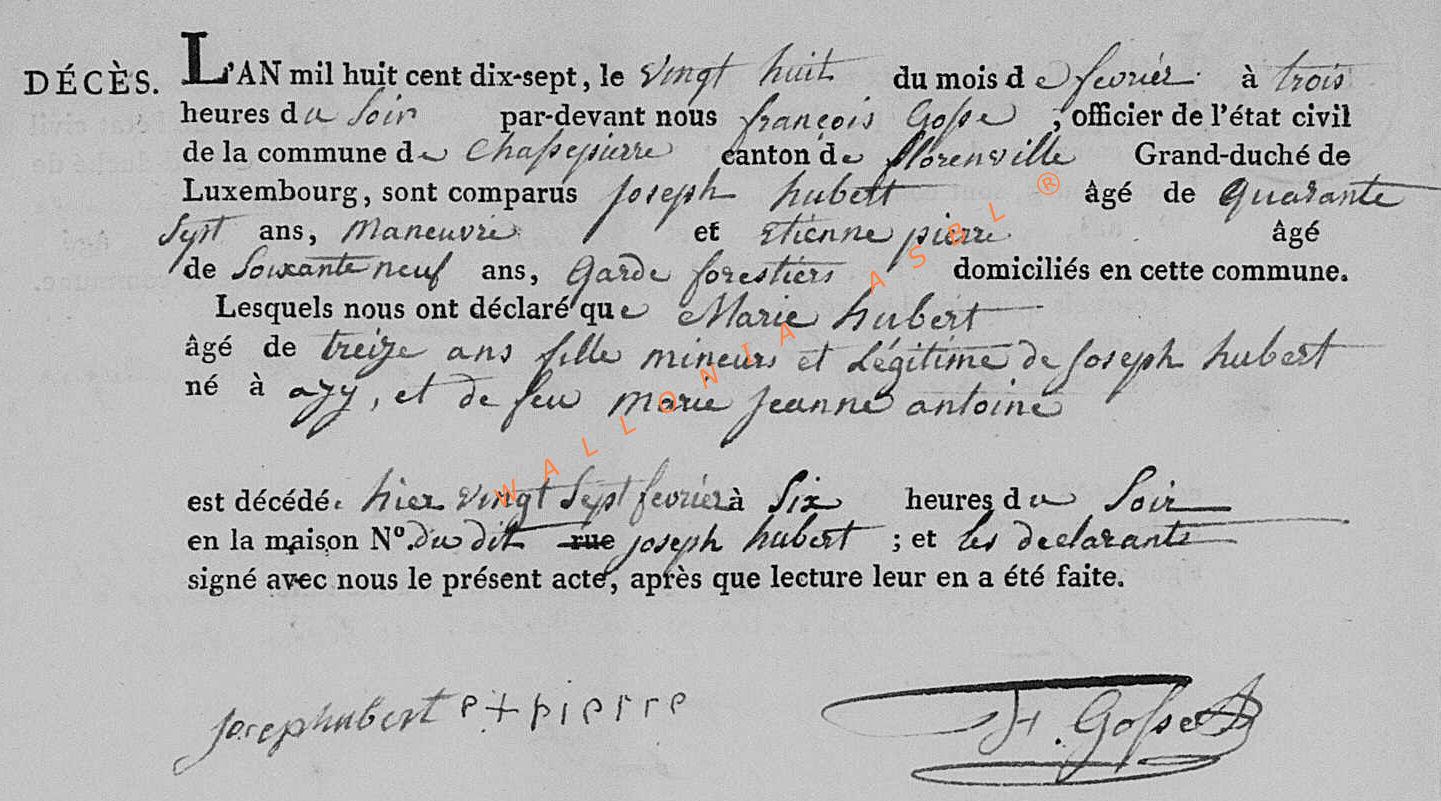 DÉCÈS. L'AN mil huit cent dix-sept, le vingt huit du mois de fevrier à trois
heures du soir par-devant nous françois Gosse, officier de l'état civil
de la commune de Chassepierre canton de florenville Grand-duché de
Luxembourg, sont comparus joseph hubert âgé de quarante
sept ans, maneuvre et Etienne pierre âgé
de soixante neuf ans, garde forestiers domiciliés en cette commune.
Lesquels nous ont déclaré que Marie hubert
âgé de treize ans fille mineure et Légitime de joseph hubert
né à azy, et de feu marie jeanne antoine
est décédé hier vingt sept fevrier à six heures du soir
en la maison N°. du dit rue joseph hubert ; et les declarants
signé avec nous le présent acte, après que lecture leur en a été faite.
josephubert e+pierre f. Gosse
WALLONIA ASBL ®